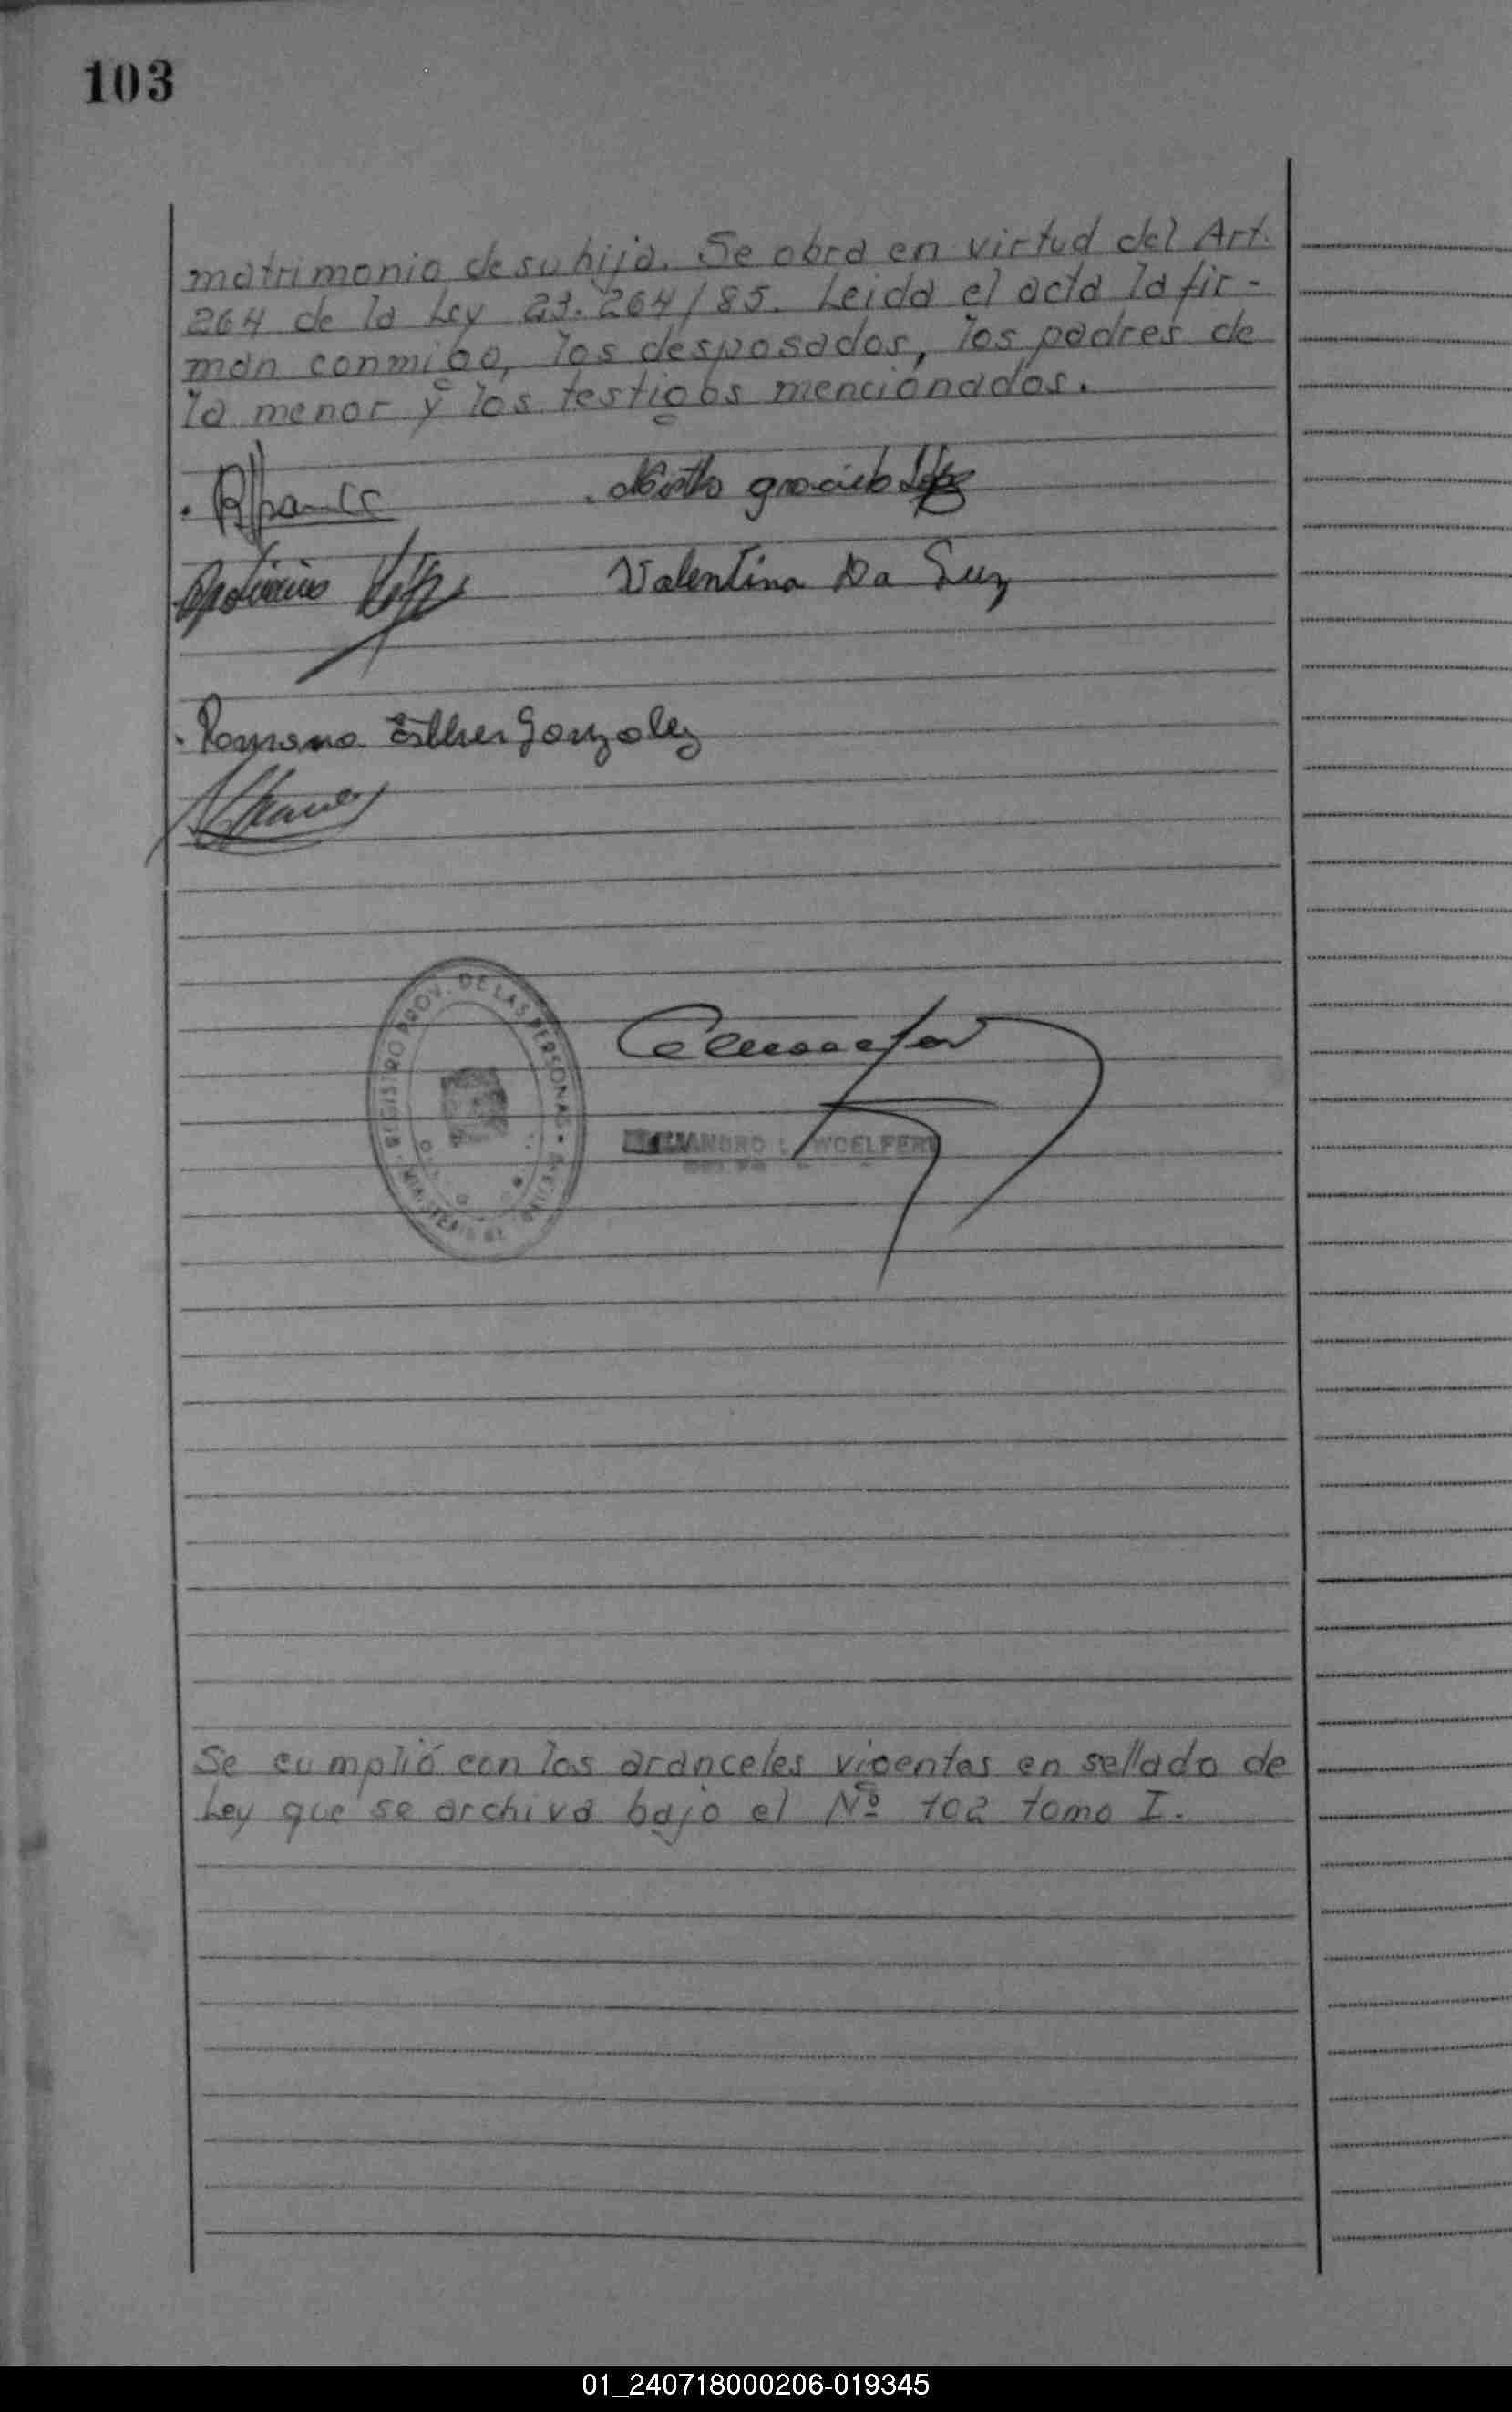 103
matrimonio de su hija. Se obra en virtud del Art.
264 de la Ley 23.264/85. Leida el acta la fir-
man conmigo, los desposados, los padres de
la menor y los testigos mencionados.
graciela
Valentina Da Luz
Romana Esther Gonzalez
REGISTRO PROV. DE LAS PERSONAS
WOELFERT
Se cumplió con los aranceles vigentes en sellado de
Ley que se archiva bajo el Nº 102 tomo I.
01_240718000206-019345